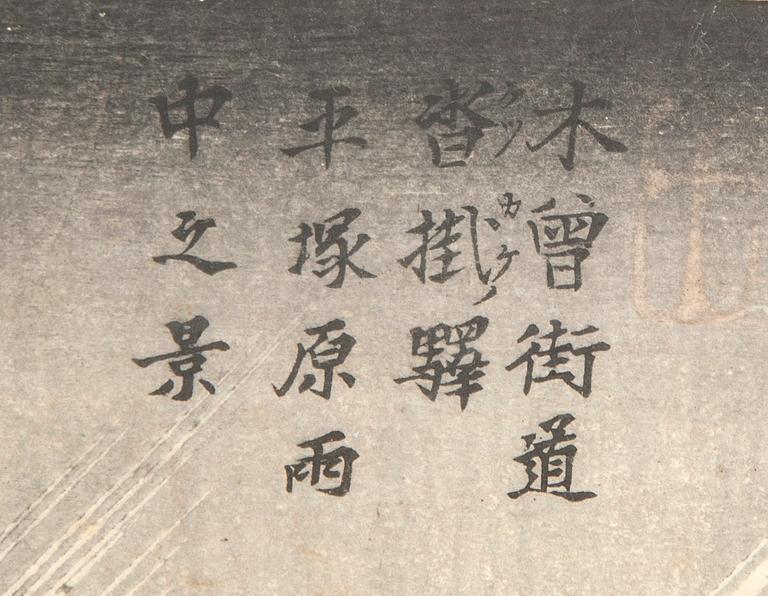 木曾街道
沓掛驛
クツカケノ
平塚原雨
中之景